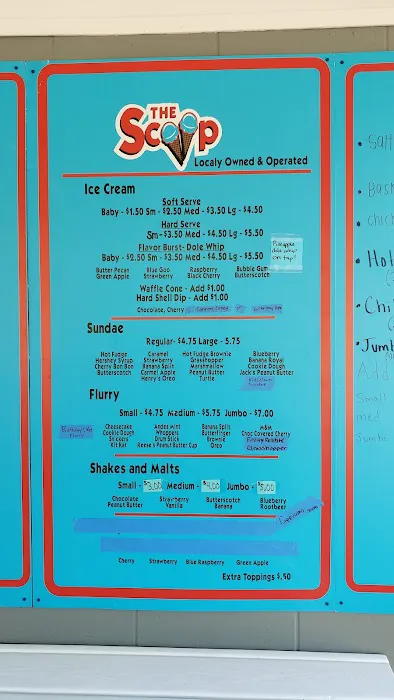 THE
Scoop
Localy Owned & Operated
Ice Cream
Soft Serve
Baby - $1.50 Sm - $2.50 Med - $3.50 Lg - $4.50
Hard Serve
Sm-$3.50 Med - $4.50 Lg - $5.50
Flavor Burst- Dole Whip
Baby - $2.50 Sm - $3.50 Med - $4.50 Lg - $5.50
Pineapple
dole whip
on tap!
Butter Pecan Blue Goo Raspberry Bubble Gum
Green Apple Strawberry Black Cherry Butterscotch
Waffle Cone - Add $1.00
Hard Shell Dip - Add $1.00
Chocolate, Cherry
Sundae
Regular- $4.75 Large - 5.75
Hot Fudge Caramel Hot Fudge Brownie Blueberry
Hershey Syrup Strawberry Grasshopper Banana Royal
Cherry Bon Bon Banana Split Marshmallow Cookie Dough
Butterscotch Carmel Apple Peanut Butter Jack's Peanut Butter
Henry's Oreo Turtle
Flurry
Small - $4.75 Medium - $5.75 Jumbo - $7.00
Cheesecake Andes Mint Banana Split M&M
Cookie Dough Whoppers Butterfinger Choc Covered Cherry
Snickers Drum Stick Brownie
Kit Kat Reese's Peanut Butter Cup Oreo
Grasshopper
Shakes and Malts
Small - $3.00 Medium - $4.00 Jumbo - $5.00
Chocolate Strawberry Butterscotch Blueberry
Peanut Butter Vanilla Banana Rootbeer
Cherry Strawberry Blue Raspberry Green Apple
Extra Toppings $.50
Hot
Chi
Jumb
Add
Small
med
Jumbo